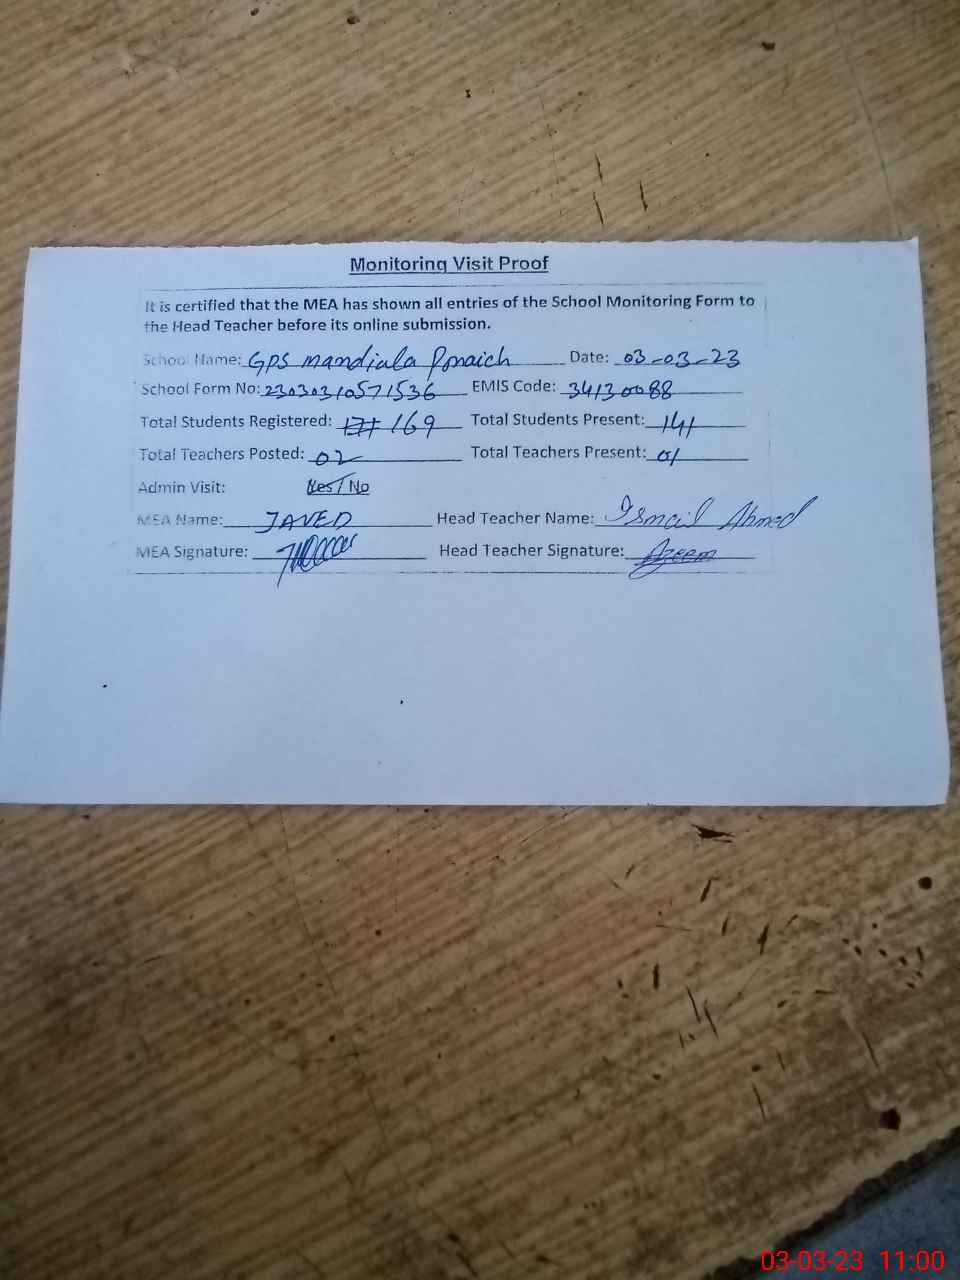 Monitoring Visit Proof
It is certified that the MEA has shown all entries of the School Monitoring Form to
the Head Teacher before its online submission.
School Name: GPS mandiala Date: 03-03-23
School Form No: 23030310571536 EMIS Code: 34130088
Total Students Registered: 169 Total Students Present: 141
Total Teachers Posted: 02 Total Teachers Present: 01
Admin Visit: Yes/No
MEA Name: JAVED Head Teacher Name: Ismail Ahmed
MEA Signature: Head Teacher Signature: Azeem
03-03-23 11:00